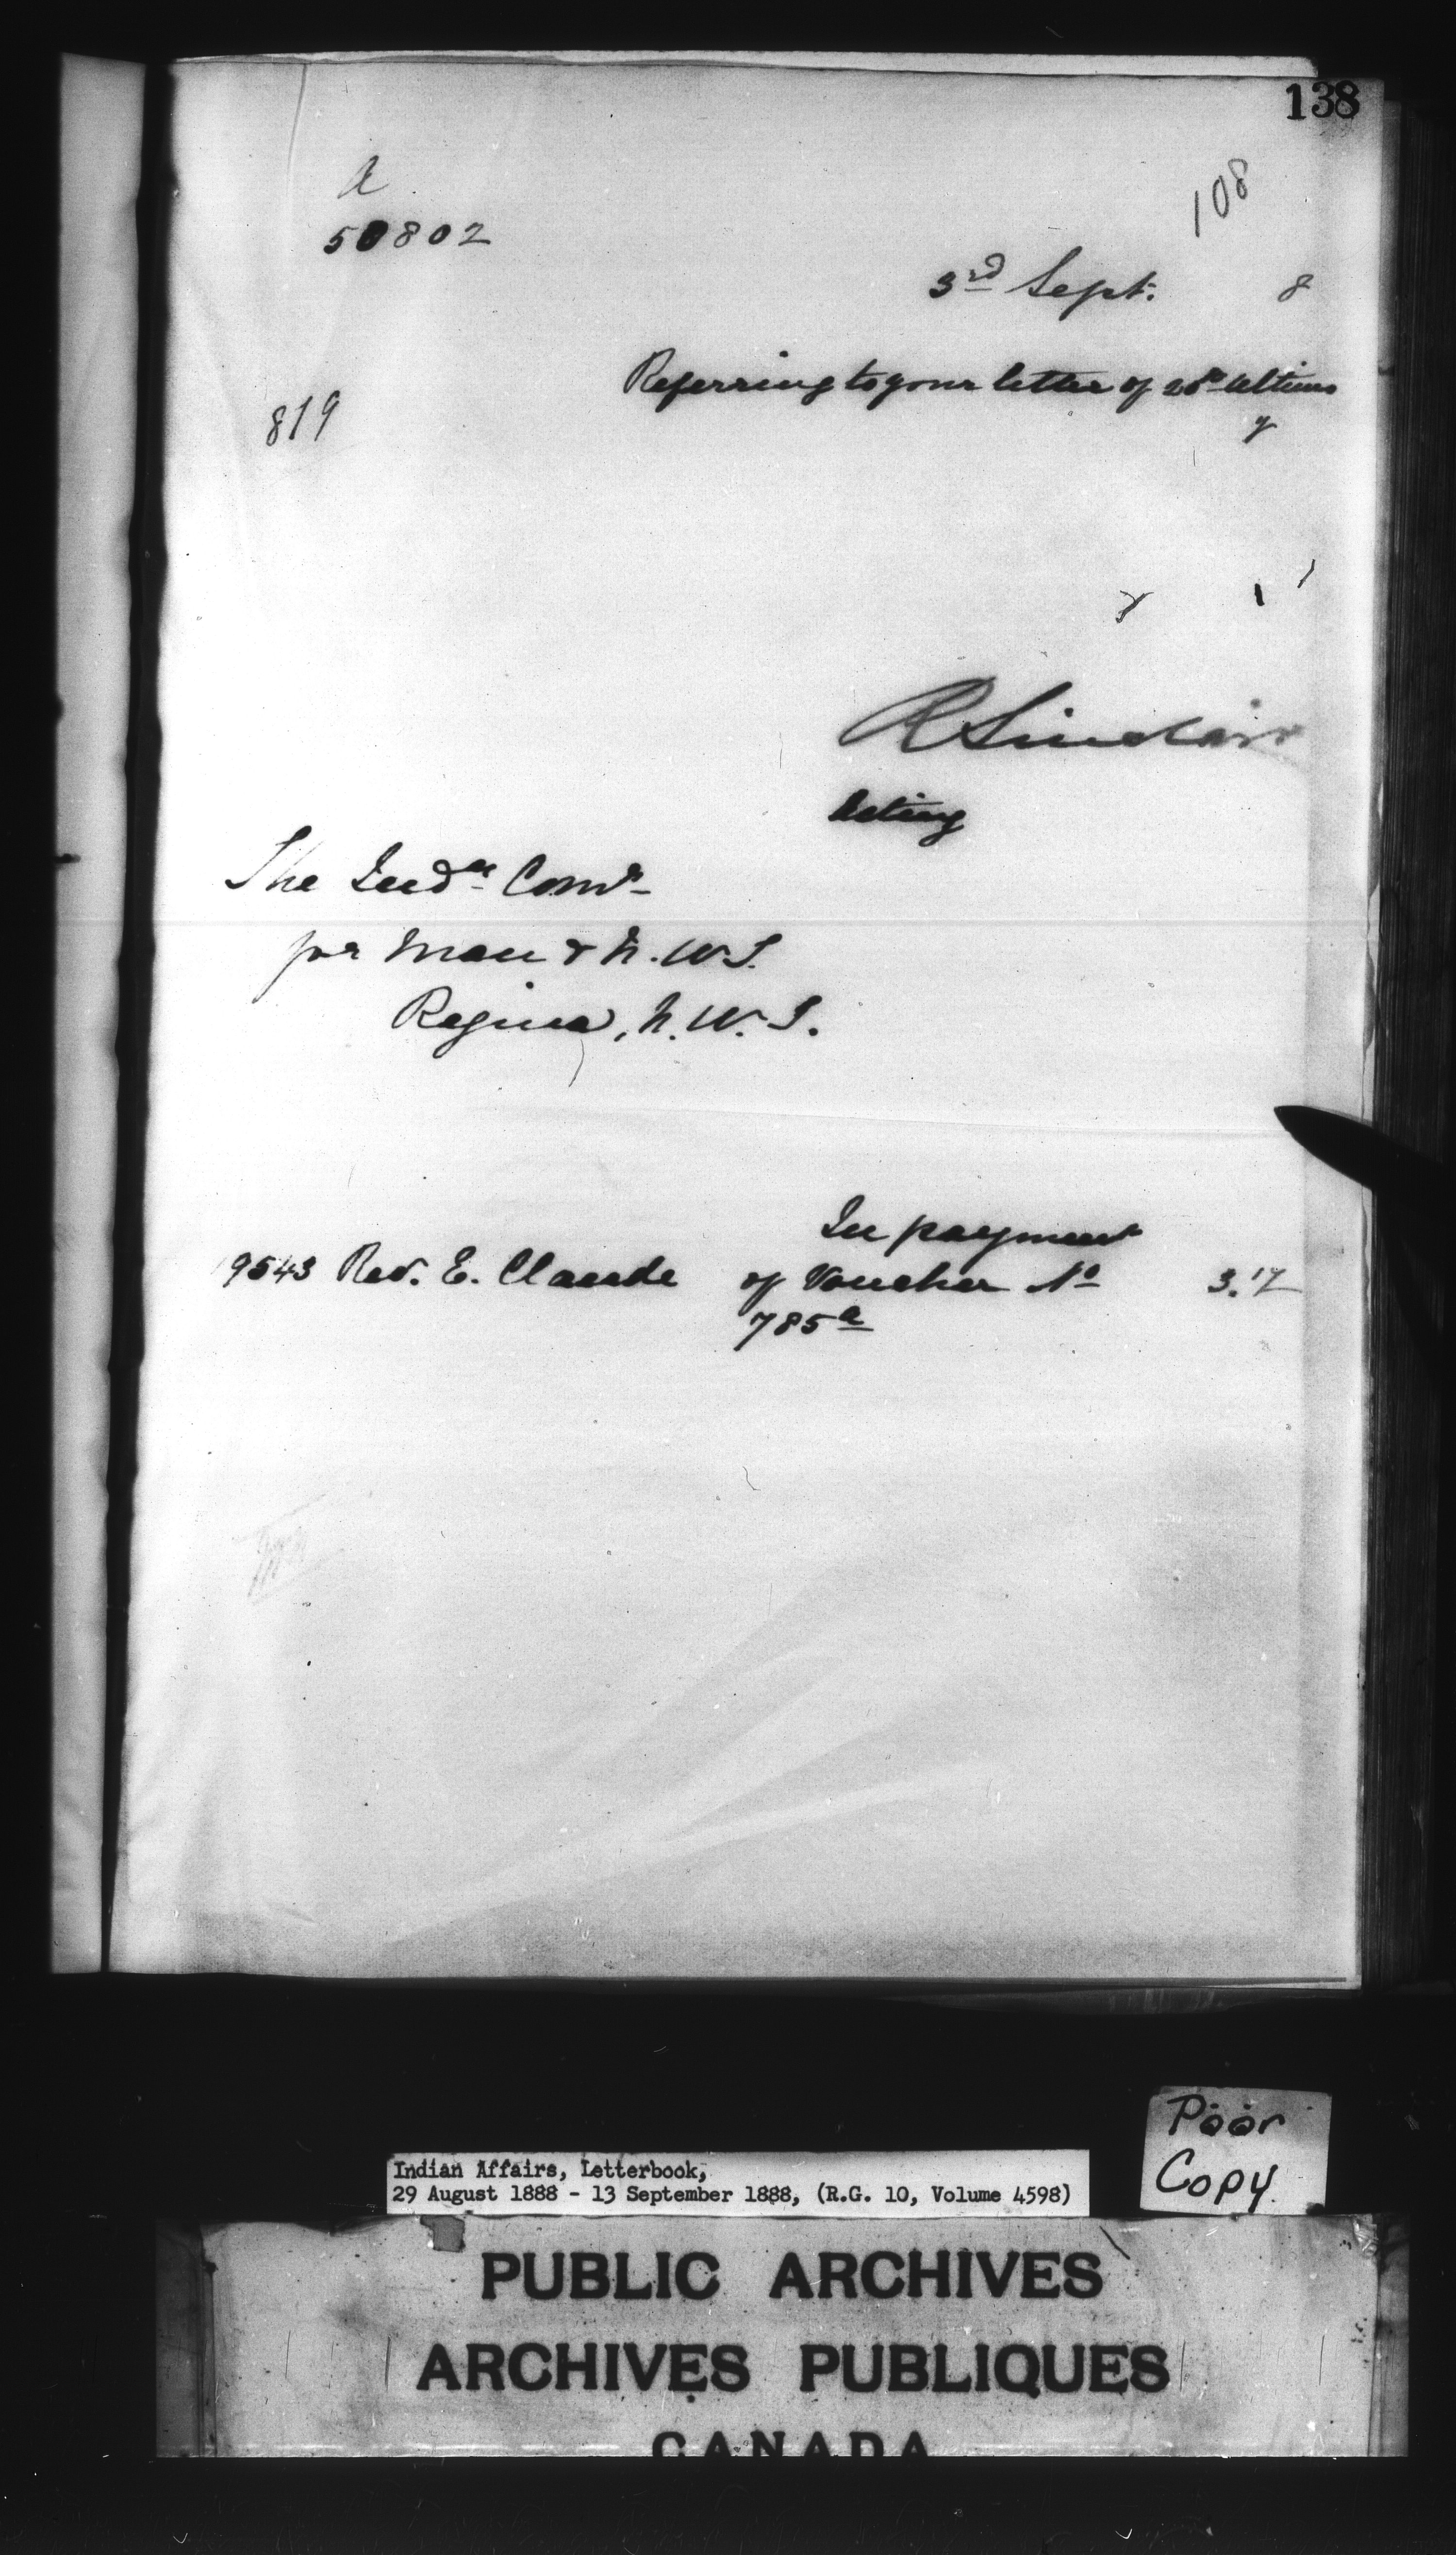 138
108
a
50802
3rd Sept. 8
Referring to your letter of 28th ultimo
y
819
R Sinclair
Acting
The Indn Comr
for Man & N.W.T.
Regina, N.W.T.
In payment
9543 Rev. E. Claude of Voucher No 3.17
785a
Poor
Copy.
Indian Affairs, Letterbook,
29 August 1888 - 13 September 1888, (R.G. 10, Volume 4598)
PUBLIC ARCHIVES
ARCHIVES PUBLIQUES
CANADA